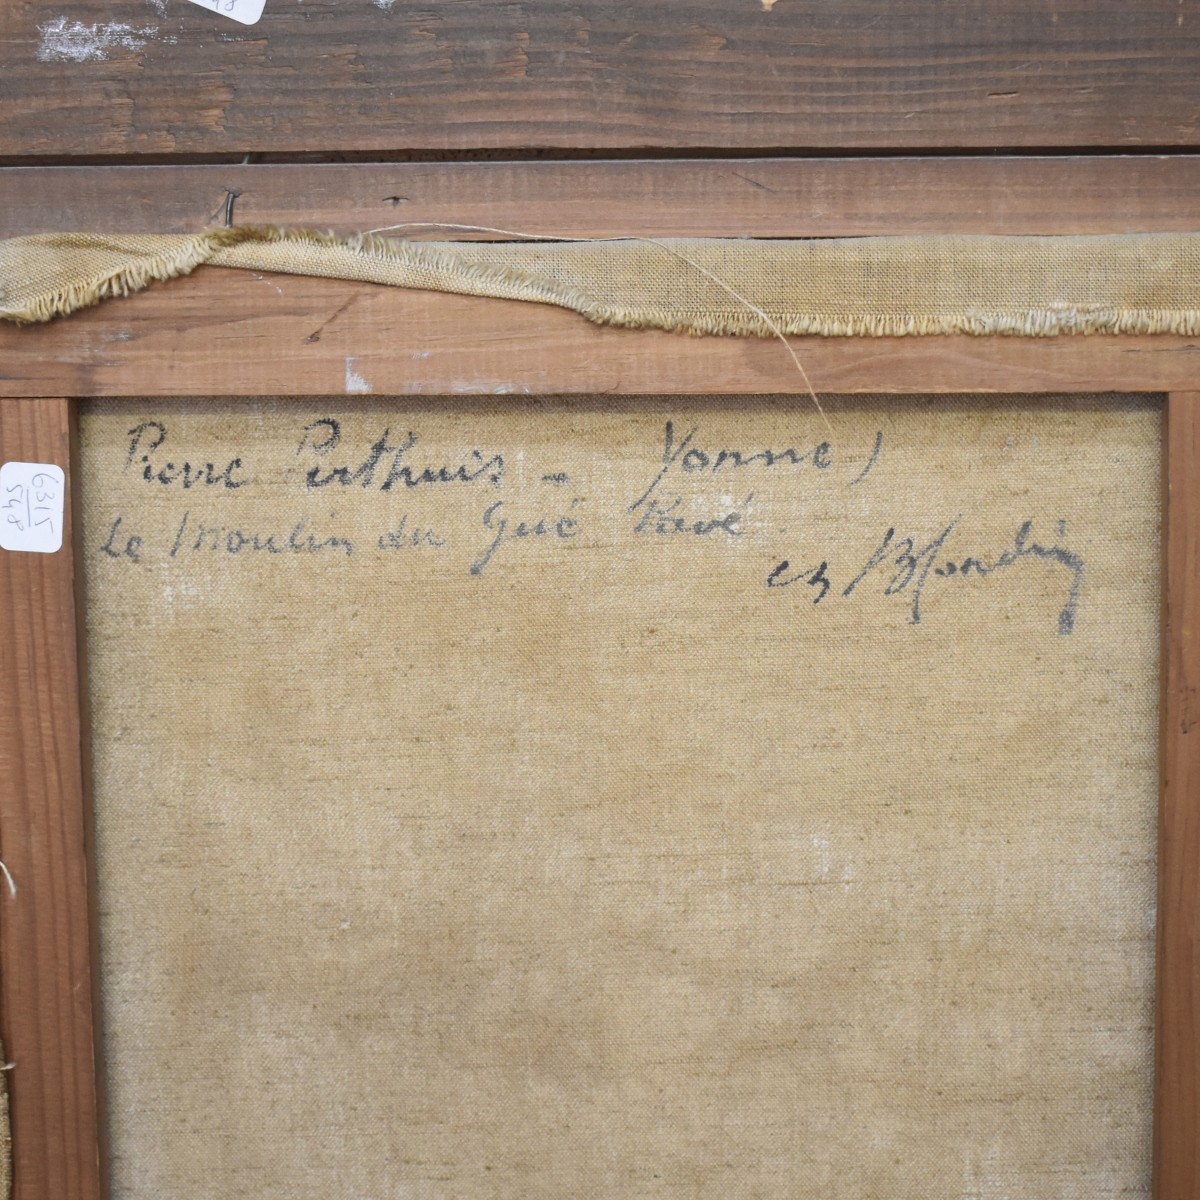 Pierre Perthuis - Yonne)
Le Moulin du Gué Pavé.
Ch Blondin
6315
548